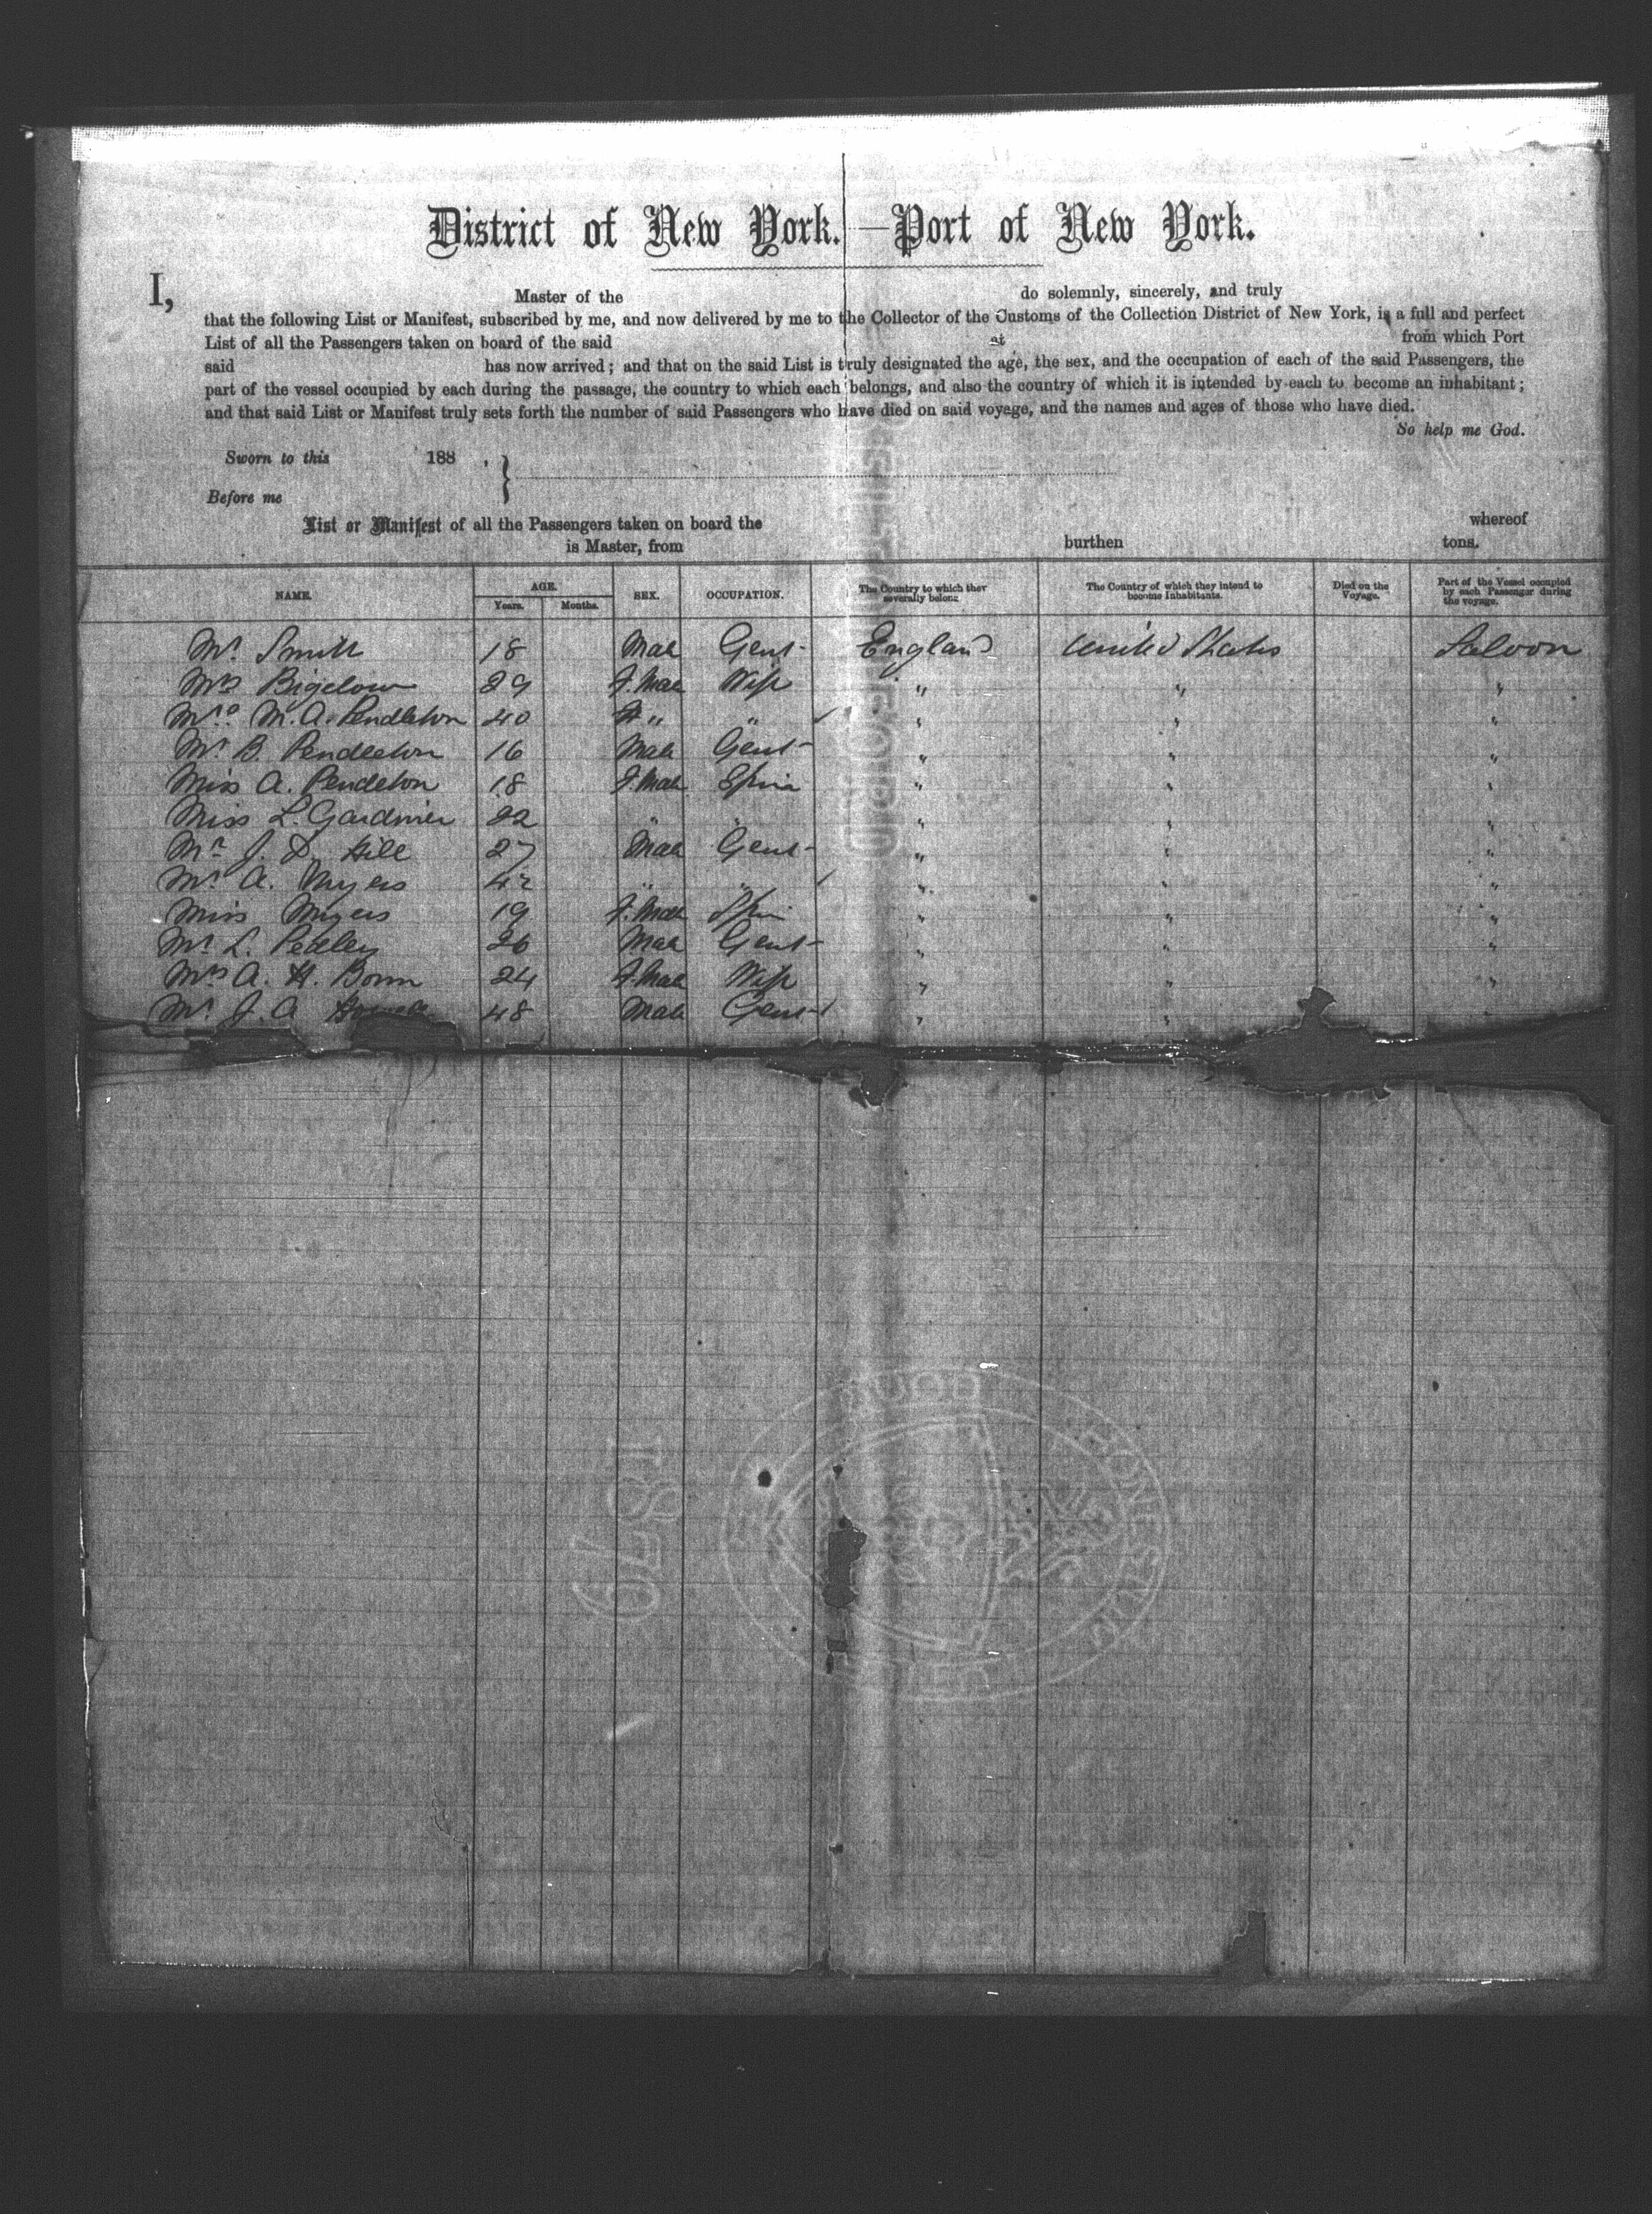 District of New York.—Port of New York.
I, Master of the do solemnly, sincerely, and truly
that the following List or Manifest, subscribed by me, and now delivered by me to the Collector of the Customs of the Collection District of New York, is a full and perfect
List of all the Passengers taken on board of the said at from which Port
said has now arrived; and that on the said List is truly designated the age, the sex, and the occupation of each of the said Passengers, the
part of the vessel occupied by each during the passage, the country to which each belongs, and also the country of which it is intended by each to become an inhabitant;
and that said List or Manifest truly sets forth the number of said Passengers who have died on said voyage, and the names and ages of those who have died.
So help me God.
Sworn to this 188 ,
Before me
List or Manifest of all the Passengers taken on board the whereof
is Master, from burthen tons.
NAME. AGE. Years. Months. SEX. OCCUPATION. The Country to which they severally belong. The Country of which they intend to become Inhabitants. Died on the Voyage. Part of the Vessel occupied by each Passenger during the voyage.
Mr. Smith 18 Male Gent England United States Saloon
Mrs Bigelow 29 F.Male Wife " " "
Mrs. M. A. Pendleton 40 " " " " "
Mr B. Pendleton 16 Male Gent " " "
Miss A. Pendleton 18 F.Male Spin " " "
Miss L. Gardnier 22 " " " " "
Mr J. Hill 27 Male Gent " " "
Mr A. Myers 42 " " " " "
Miss Myers 19 F.Male Spin " " "
Mr L. Pedley 26 Male Gent " " "
Mrs A. H. Bonn 24 F.Male Wife " " "
Mr J. A 48 Male Gent " "
1879